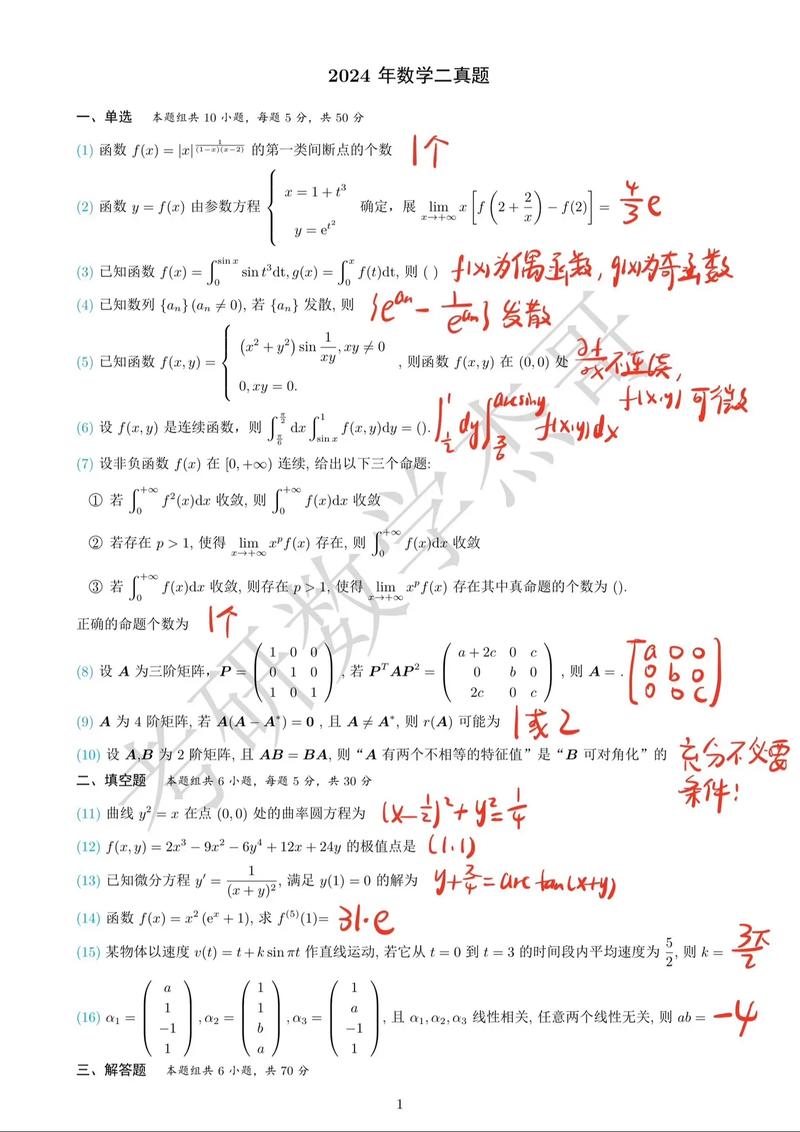 2024 年数学二真题
一、单选 本题组共 10 小题，每题 5 分，共 50 分
(1) 函数 f(x) = |x|^{\frac{1}{(1-x)(x-2)}} 的第一类间断点的个数 1个
(2) 函数 y = f(x) 由参数方程 \begin{cases} x = 1 + t^3 \\ y = e^{t^2} \end{cases} 确定，展 \lim_{x→+∞} x [f(2 + \frac{2}{x}) − f(2)] = \frac{4}{3}e
(3) 已知函数 f(x) = ∫_0^{sin x} sin t^3 dt, g(x) = ∫_0^x f(t)dt, 则 ( ) f(x)为偶函数，g(x)为奇函数
(4) 已知数列 {a_n} (a_n ≠ 0), 若 {a_n} 发散, 则 {e^{a_n} − \frac{1}{e^{a_n}}} 发散
(5) 已知函数 f(x, y) = \begin{cases} (x^2 + y^2) sin \frac{1}{xy}, xy ≠ 0 \\ 0, xy = 0. \end{cases} , 则函数 f(x, y) 在 (0, 0) 处 \frac{∂f}{∂x}不连续，
f(x,y) 可微
(6) 设 f(x, y) 是连续函数，则 ∫_{\frac{π}{6}}^{\frac{π}{2}} dx ∫_{sin x}^1 f(x, y)dy = (). ∫_{\frac{1}{2}}^1 dy ∫_{\frac{π}{6}}^{arcsiny} f(x,y)dx
(7) 设非负函数 f(x) 在 [0, +∞) 连续, 给出以下三个命题:
① 若 ∫_0^{+∞} f^2(x)dx 收敛, 则 ∫_0^{+∞} f(x)dx 收敛
② 若存在 p > 1, 使得 \lim_{x→+∞} x^p f(x) 存在, 则 ∫_0^{+∞} f(x)dx 收敛
③ 若 ∫_0^{+∞} f(x)dx 收敛, 则存在 p > 1, 使得 \lim_{x→+∞} x^p f(x) 存在其中真命题的个数为 ().
正确的命题个数为 1个
(8) 设 A 为三阶矩阵，P = \begin{pmatrix} 1 & 0 & 0 \\ 0 & 1 & 0 \\ 1 & 0 & 1 \end{pmatrix}, 若 P^T AP^2 = \begin{pmatrix} a + 2c & 0 & c \\ 0 & b & 0 \\ 2c & 0 & c \end{pmatrix}, 则 A = . \begin{bmatrix} a & 0 & 0 \\ 0 & b & 0 \\ 0 & 0 & c \end{bmatrix}
(9) A 为 4 阶矩阵, 若 A(A − A^*) = 0 , 且 A ≠ A^*, 则 r(A) 可能为 1或2
(10) 设 A,B 为 2 阶矩阵, 且 AB = BA, 则 “A 有两个不相等的特征值” 是 “B 可对角化” 的 充分不必要
条件！
二、填空题 本题组共 6 小题，每题 5 分，共 30 分
(11) 曲线 y^2 = x 在点 (0, 0) 处的曲率圆方程为 (x−\frac{1}{2})^2 + y^2 = \frac{1}{4}
(12) f(x, y) = 2x^3 − 9x^2 − 6y^4 + 12x + 24y 的极值点是 (1.1)
(13) 已知微分方程 y′ = \frac{1}{(x + y)^2}, 满足 y(1) = 0 的解为 y+\frac{π}{4} = arctan(x+y)
(14) 函数 f(x) = x^2 (e^x + 1), 求 f^{(5)}(1)= 31·e
(15) 某物体以速度 v(t) = t + k sin πt 作直线运动, 若它从 t = 0 到 t = 3 的时间段内平均速度为 \frac{5}{2}, 则 k = \frac{3π}{2}
(16) α_1 = \begin{pmatrix} a \\ 1 \\ −1 \\ 1 \end{pmatrix}, α_2 = \begin{pmatrix} 1 \\ 1 \\ b \\ a \end{pmatrix}, α_3 = \begin{pmatrix} 1 \\ a \\ −1 \\ 1 \end{pmatrix}, 且 α_1, α_2, α_3 线性相关, 任意两个线性无关, 则 ab = −4
三、解答题 本题组共 6 小题，共 70 分
1
考研数学杰哥